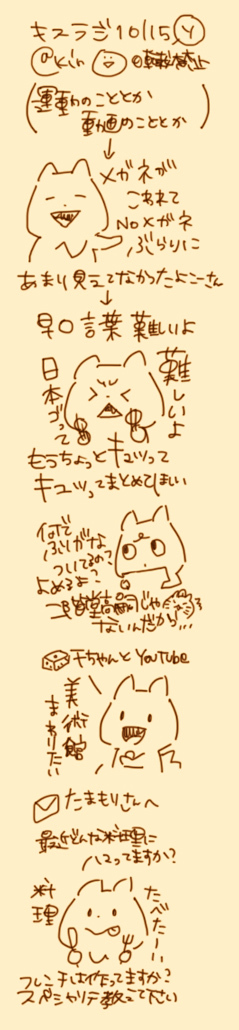 キスラジ10/15 Y
@kin 無断転載禁止
(運動のこととか
動画のこととか)
↓
メガネが
こわれて
NOメガネ
ぶらりに
あまり見えてなかったよこーさん
↓
早口言葉 難しいよ
難しいよ
日本ゴって
もうちょっとキュッって
キュッってまとめてほしい
何で
ふりがな
ついてるの?
よめるよ?
じゃ
ないんだから…
千ちゃんとYouTube
美術館
まわりたい
たまもりさんへ
最近どんな料理に
ハマってますか?
料理
たべたーい
フレンチは作ってますか?
スペシャリテ教えて下さい